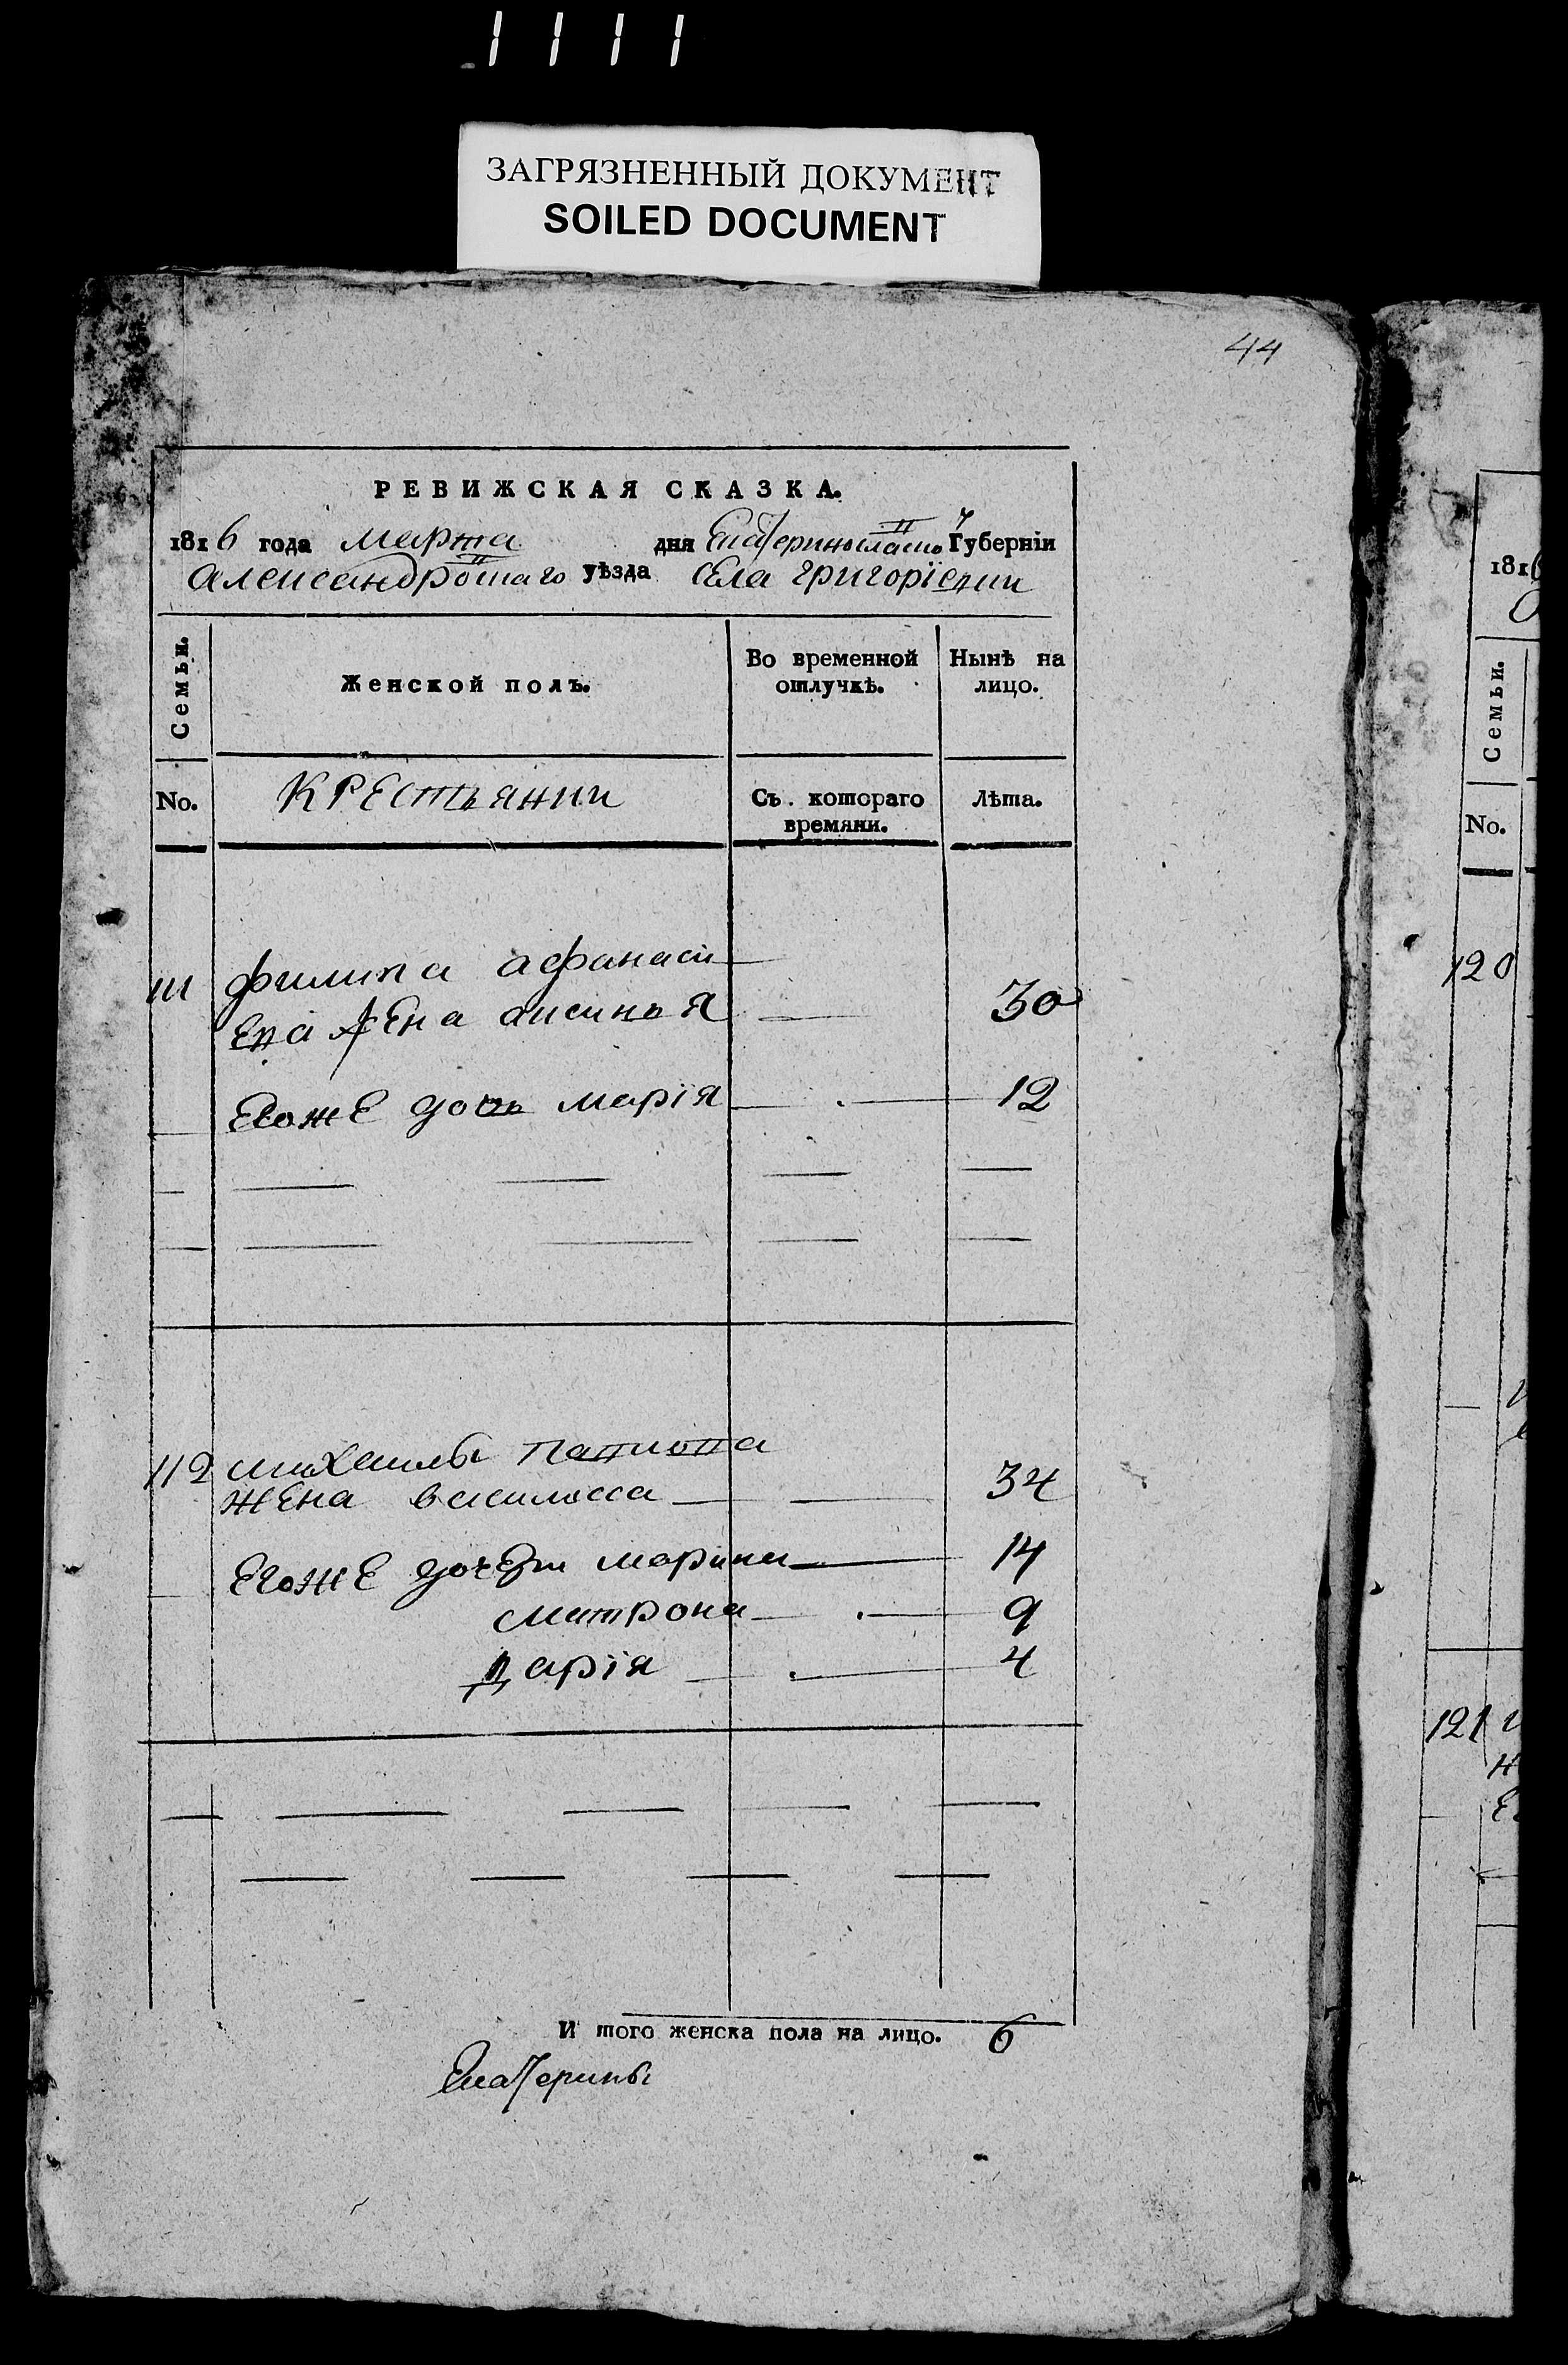 1111
ЗАГРЯЗНЕННЫЙ ДОКУМЕНТ
SOILED DOCUMENT
44
РЕВИЖСКАЯ СКАЗКА.
1816 года марта дня Екатеринославской Губерніи
александровскаго уѣзда села григорієвки
Семьи.
Женской полъ.
Во временной отлучкѣ.
Нынѣ на лицо.
No.
крестьянки
Съ котораго времяни.
Лѣта.
111 филипа афанасі
ева жена аксинья 30
егоже дочь марія 12
112 михаилы
жена василисса 34
егоже дочери марина 14
матрона 9
дарія 4
И того женска пола на лицо. 6
Екатерины
1816
Семьи.
No.
120
121